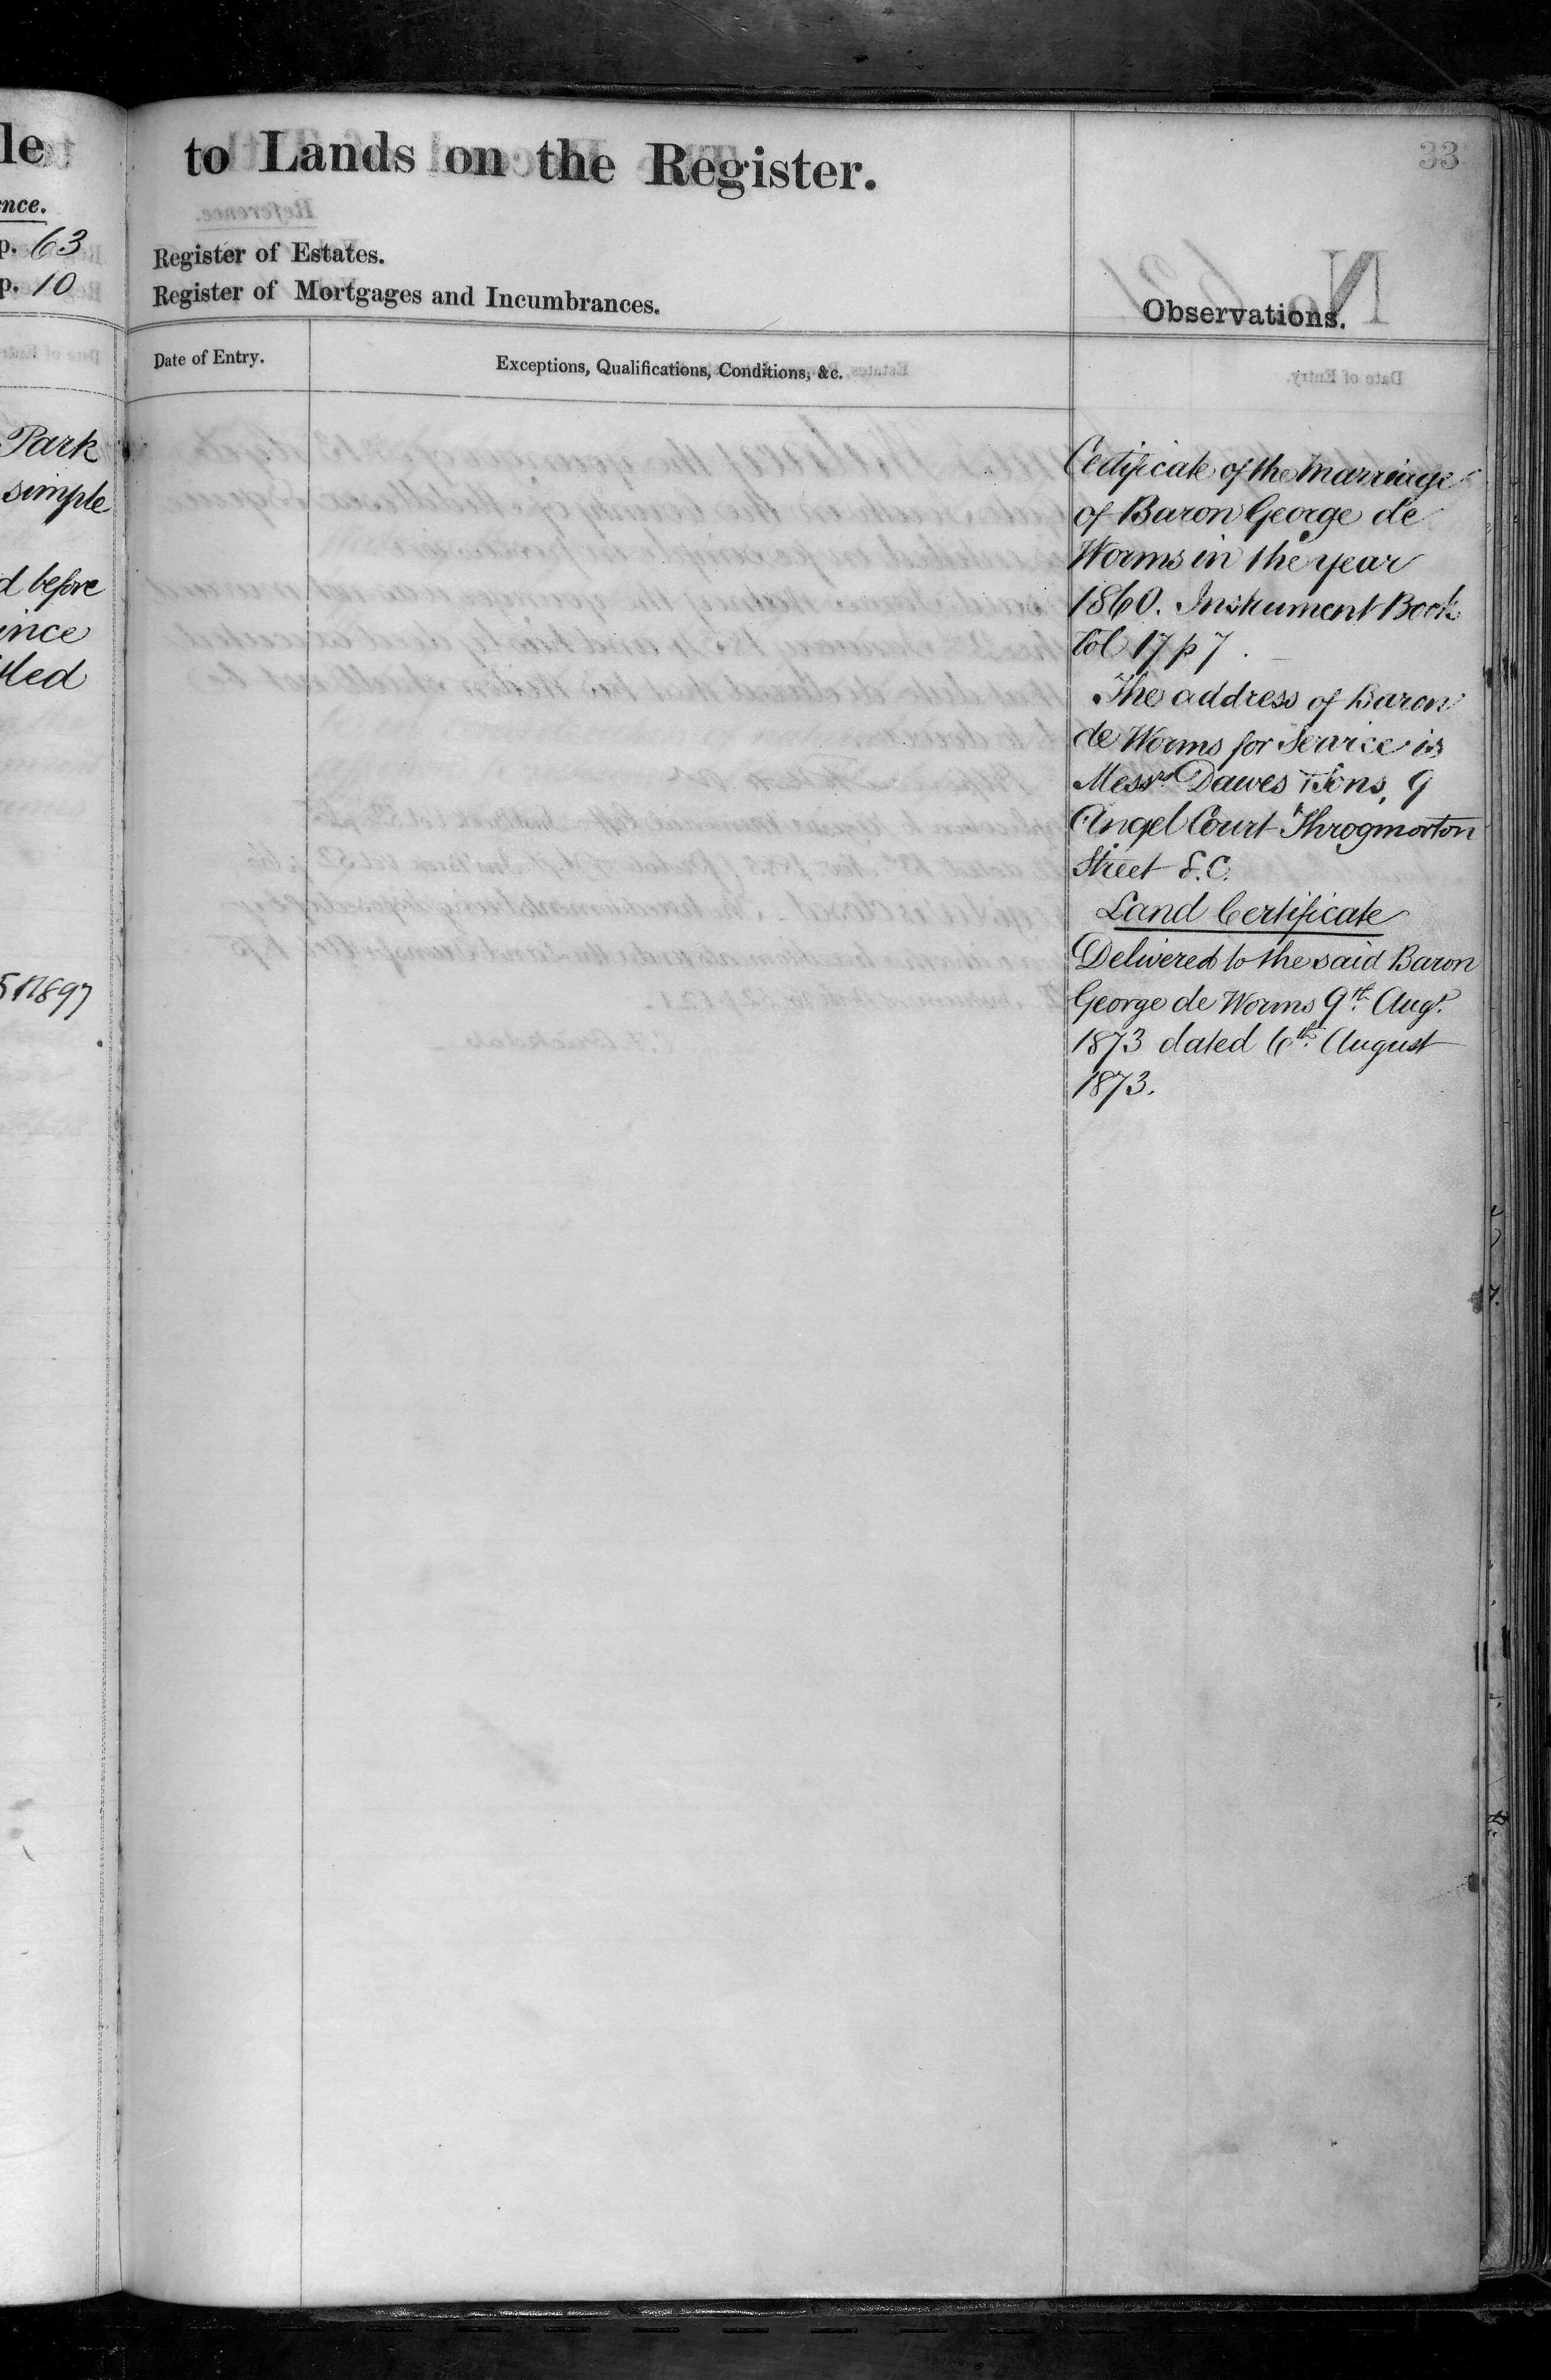 le
nce.
p. 63
p. 10
Park
simple
d before
ince
tled
1897
to Lands on the Register.
33
Register of Estates.
Register of Mortgages and Incumbrances.
Observations.
Date of Entry.
Exceptions, Qualifications, Conditions, &c.
Certificate of the marriage
of Baron George de
Worms in the year
1860. Instrument Book
Vol 17 p 7.
The address of Baron
de Worms for Service is
Messrs Dawes & Sons, 9
Angel Court Throgmorton
Street E.C.
Land Certificate
Delivered to the said Baron
George de Worms 9th Augt
1873 dated 6th August
1873.